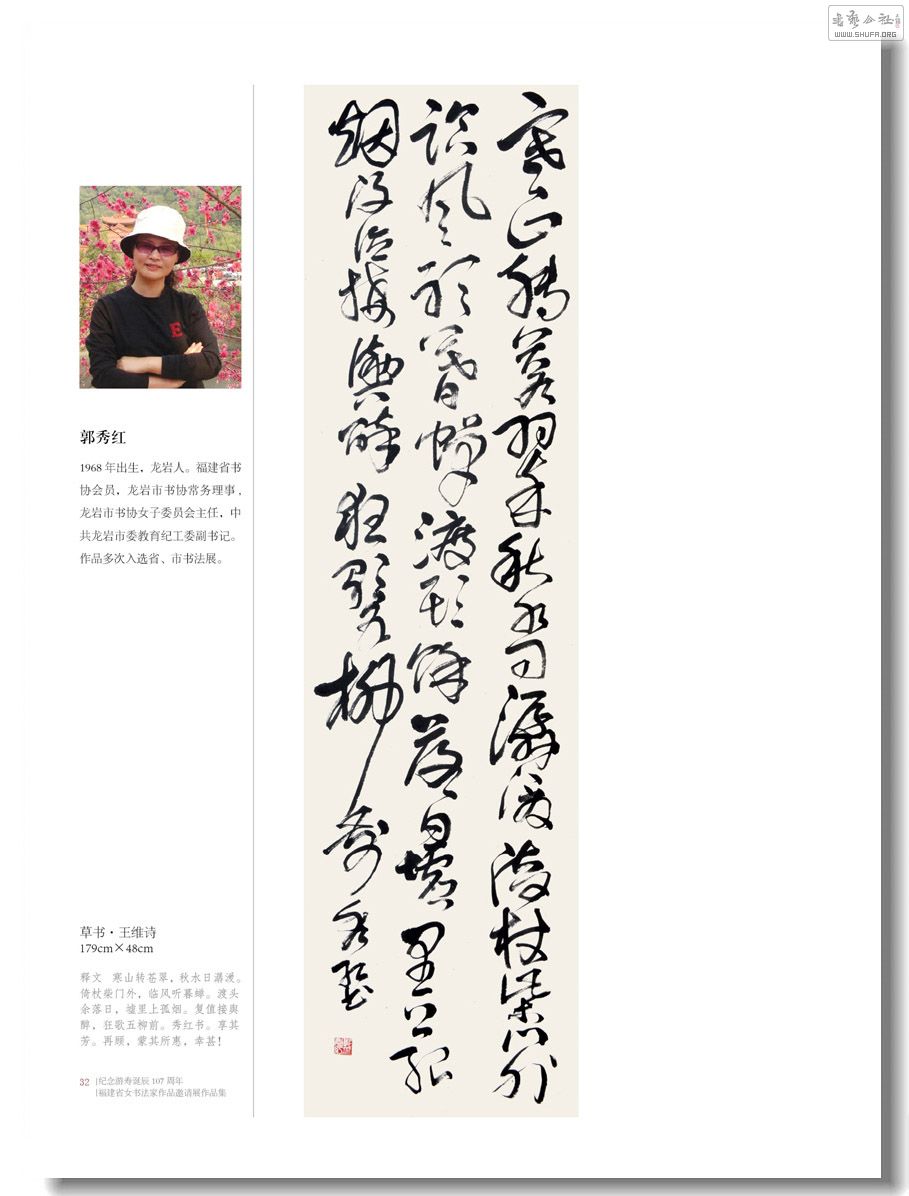 書藝公社
WWW.SHUFA.ORG
寒山轉蒼翠秋水日潺湲倚杖柴門外
臨風聽暮蟬渡頭餘落日墟里上孤
烟復值接輿醉狂歌五柳前秀紅書
郭秀红
1968 年出生，龙岩人。福建省书
协会员，龙岩市书协常务理事，
龙岩市书协女子委员会主任，中
共龙岩市委教育纪工委副书记。
作品多次入选省、市书法展。
草书·王维诗
179cm×48cm
释文 寒山转苍翠，秋水日潺湲。
倚杖柴门外，临风听暮蝉。渡头
余落日，墟里上孤烟。复值接舆
醉，狂歌五柳前。秀红书。享其
芳。再颐，蒙其所惠，幸甚！
32 |纪念游寿诞辰 107 周年
|福建省女书法家作品邀请展作品集